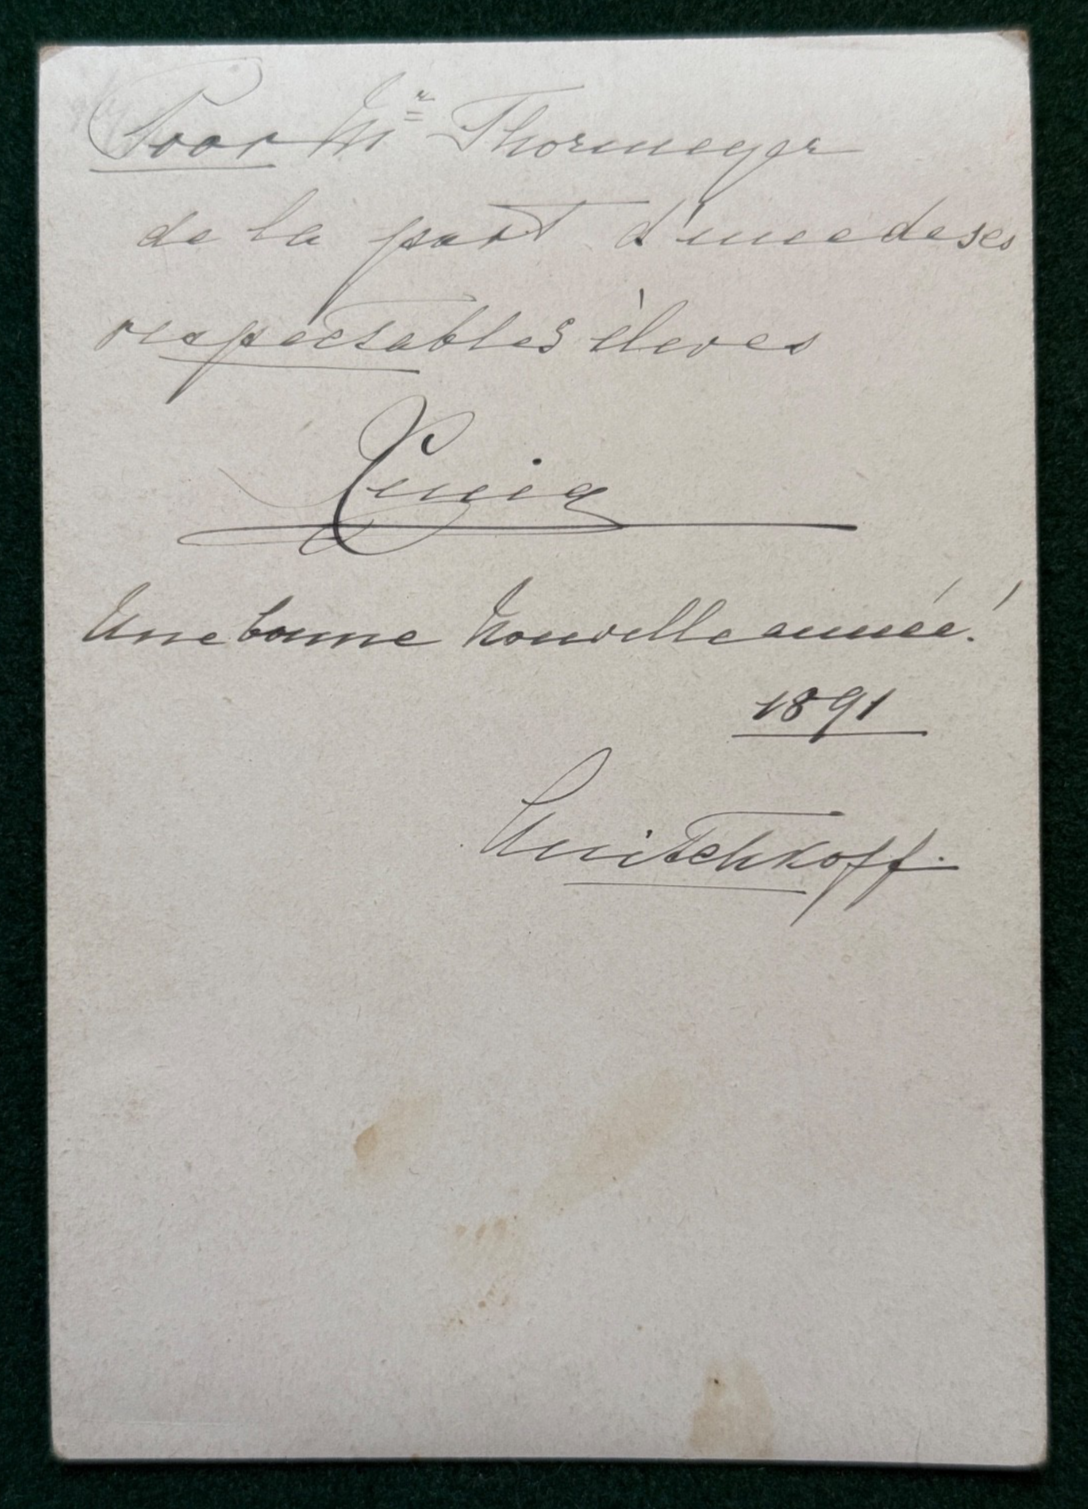 Pour Mr Thormeyer
de la part d'une de ses
respectables élèves
Xenia
Une bonne Nouvelle année!
1891
Anitchkoff.